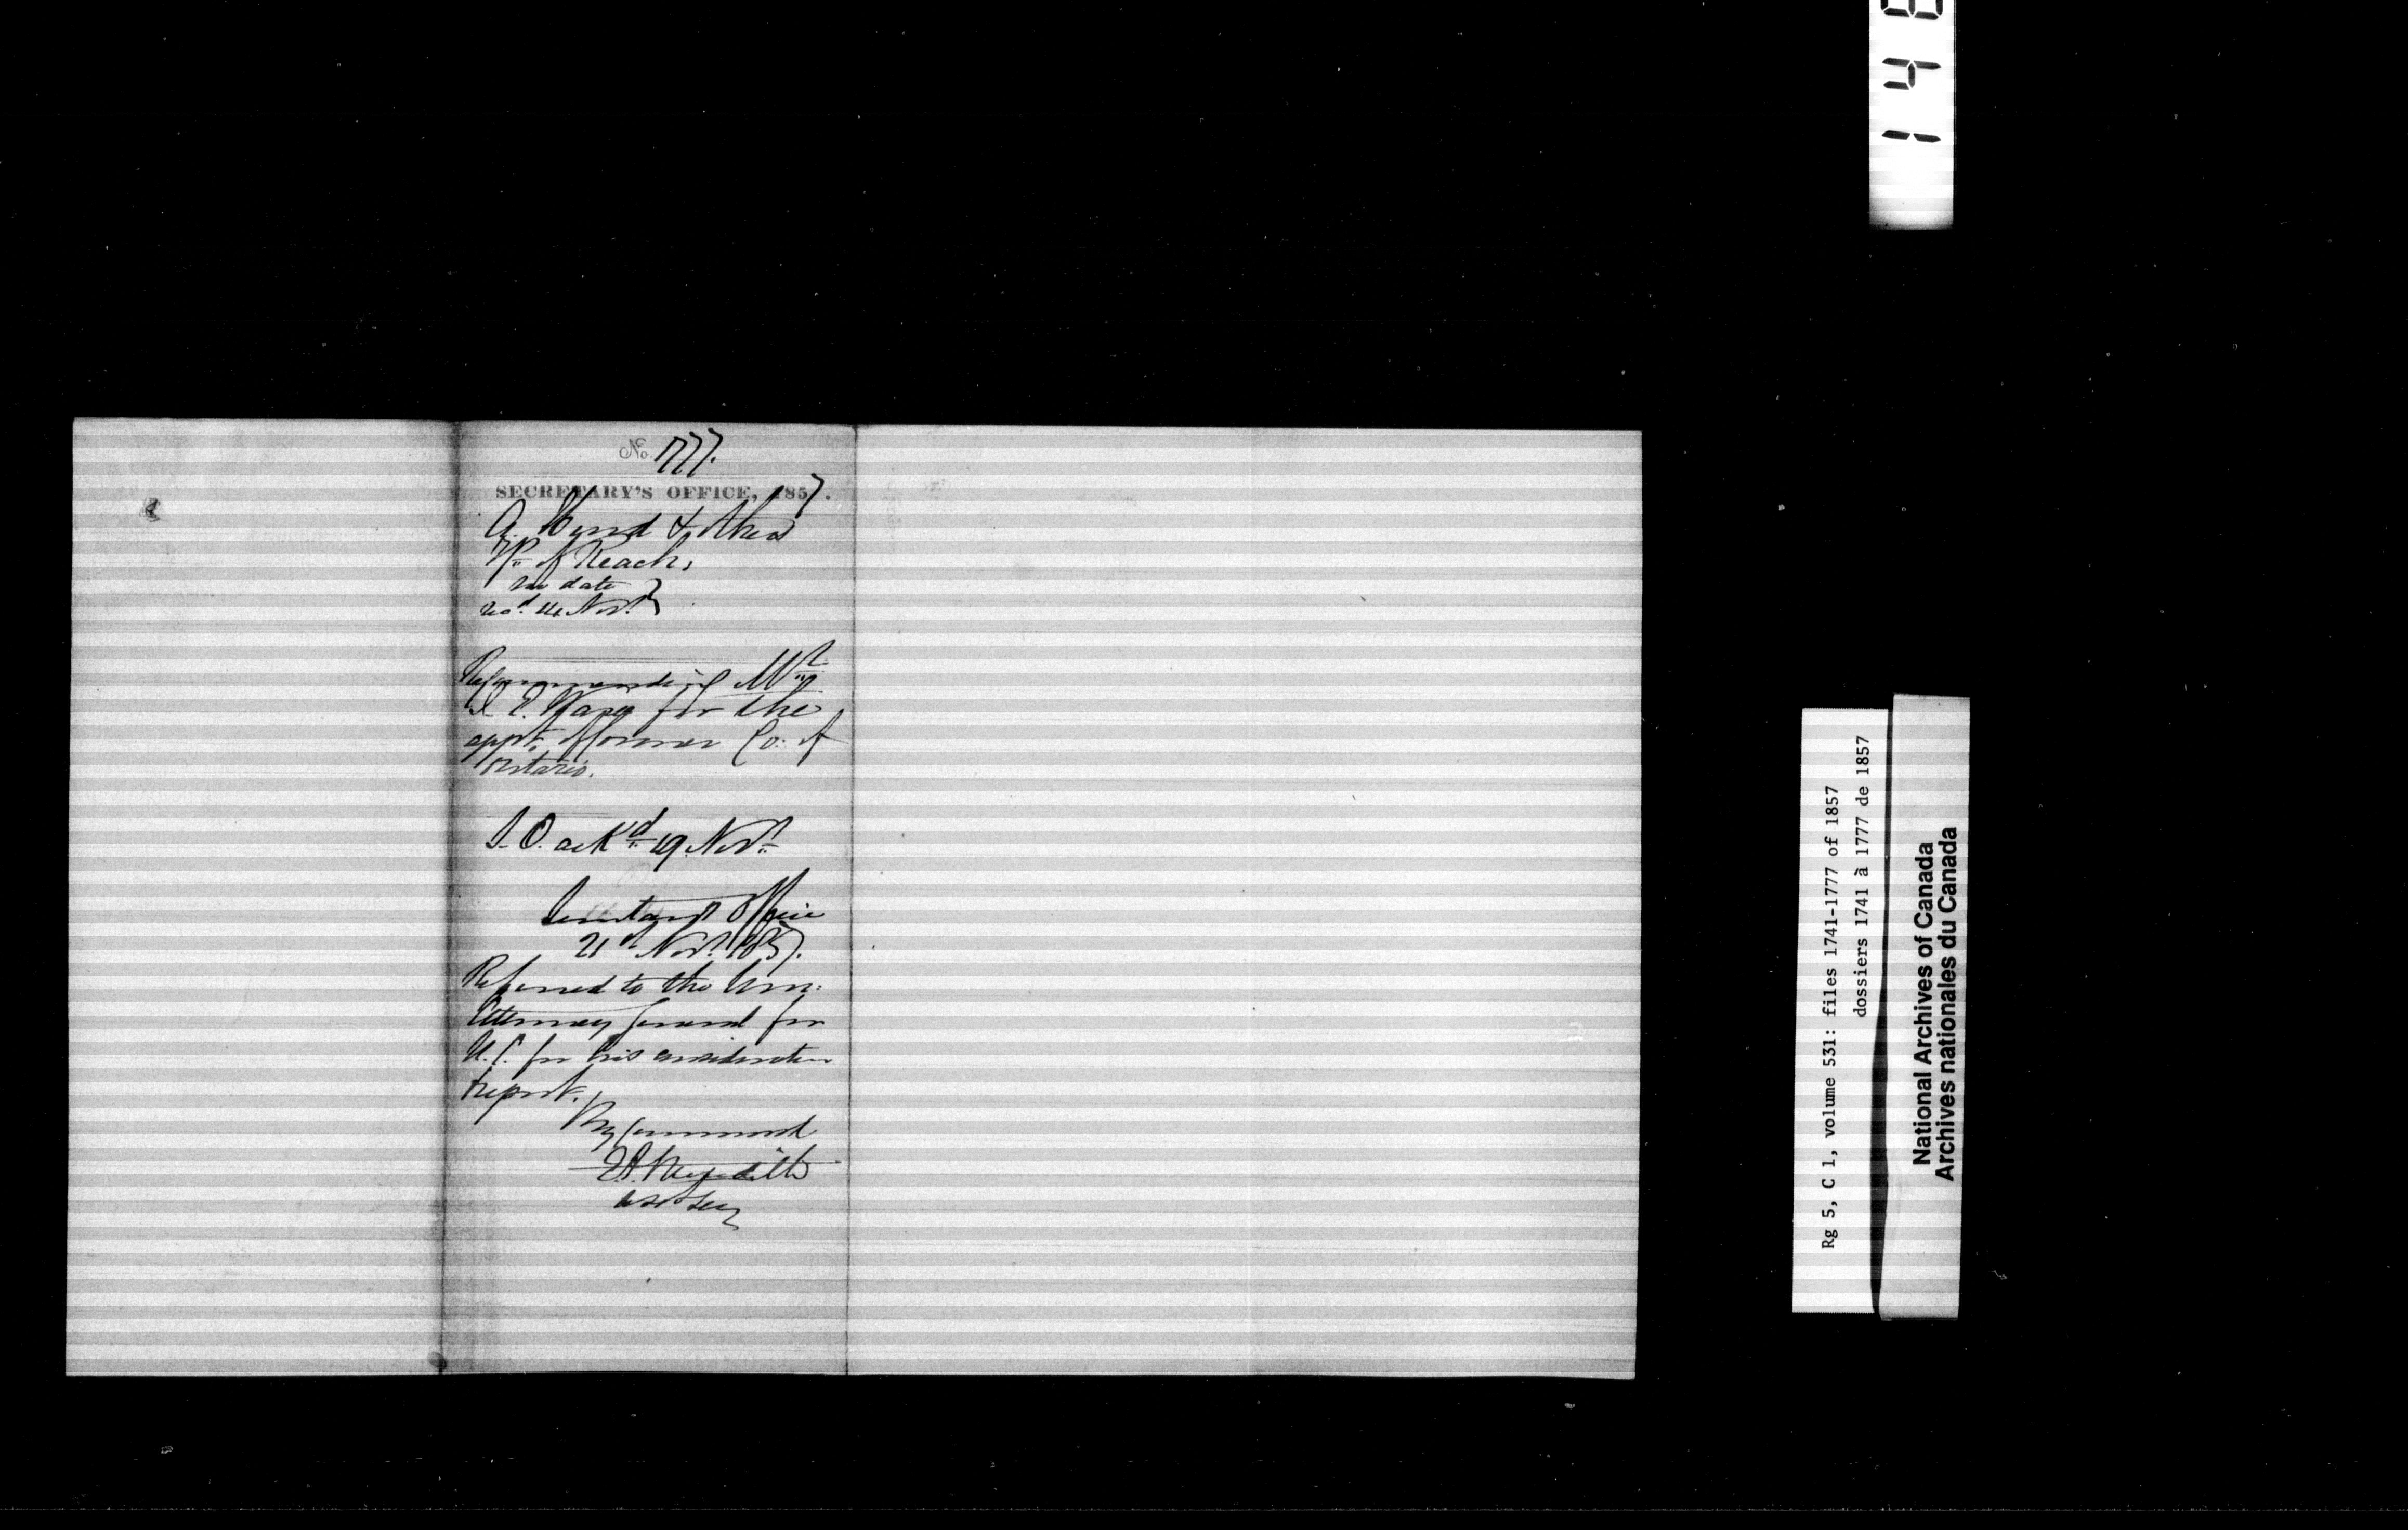 No. 1777.
SECRETARY'S OFFICE, 1857.
A. Hurd & others
Tp. of Reach,
no date
recd. 14 Novr.
Recommending Mr.
E. for the
appt. of Coroner Co: of
Ontario.
ackd. 19 Novr.
Secretary's Office
21st Novr. 1857.
Referred to the Hon:
Attorney General for
U.C. for his consideration
& report.
By Command
E.A. Meredith
Asst Secy
Rg 5, C 1, volume 531: files 1741-1777 of 1857
dossiers 1741 à 1777 de 1857
National Archives of Canada
Archives nationales du Canada
1 4